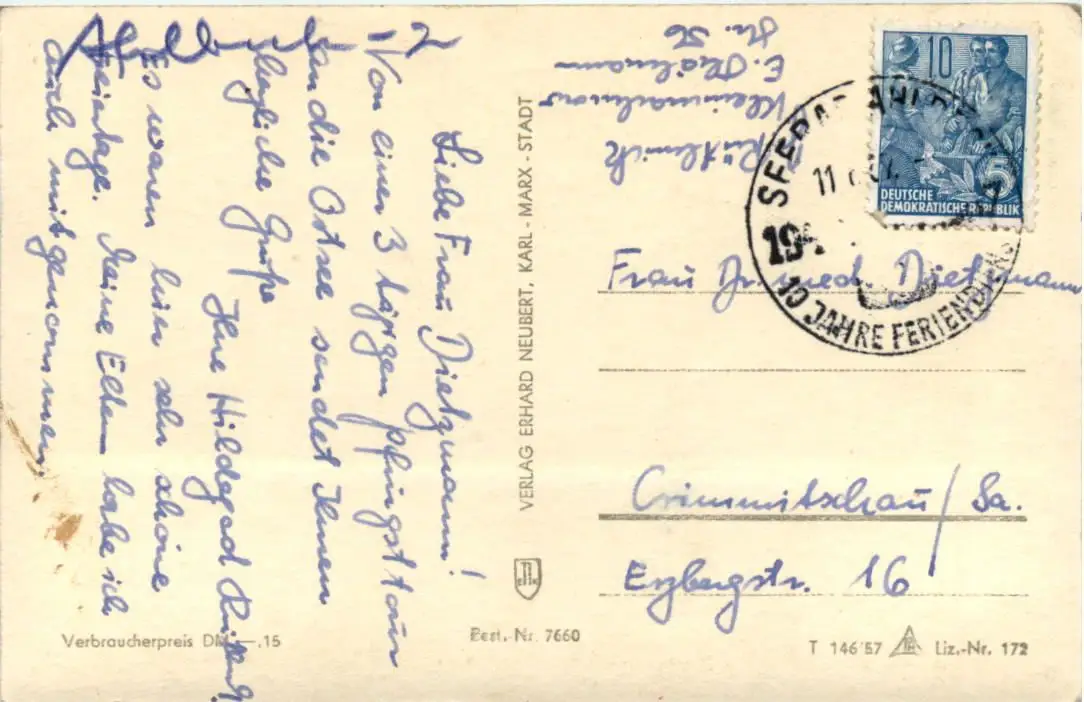 Ahlbeck
Liebe Frau Dietzmann!
Von einer 3 tägigen Pfingsttour
an die Ostsee sendet Ihnen
herzliche Grüße
Ihre Hildegard
Es waren hier sehr schöne
Feiertage. Meine Eltern habe ich
auch mitgenommen.
VERLAG ERHARD NEUBERT, KARL-MARX-STADT
E. Thälmann
Nr. 56
10
5
DEUTSCHE
DEMOKRATISCHE REPUBLIK
SEEBAD AHLBECK
11
194
10 JAHRE FERIENDIENST
Frau Dr. med. Dietzmann
Crimmitschau/Sa.
Erzbergstr. 16
Verbraucherpreis DM —.15
Best.-Nr. 7660
T 146/57 Liz.-Nr. 172